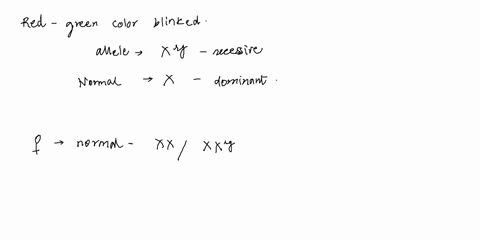 Red - green color blinked.
allele → Xʸ - recessive
Normal → X - dominant.
♀ → normal - XX / XXʸ